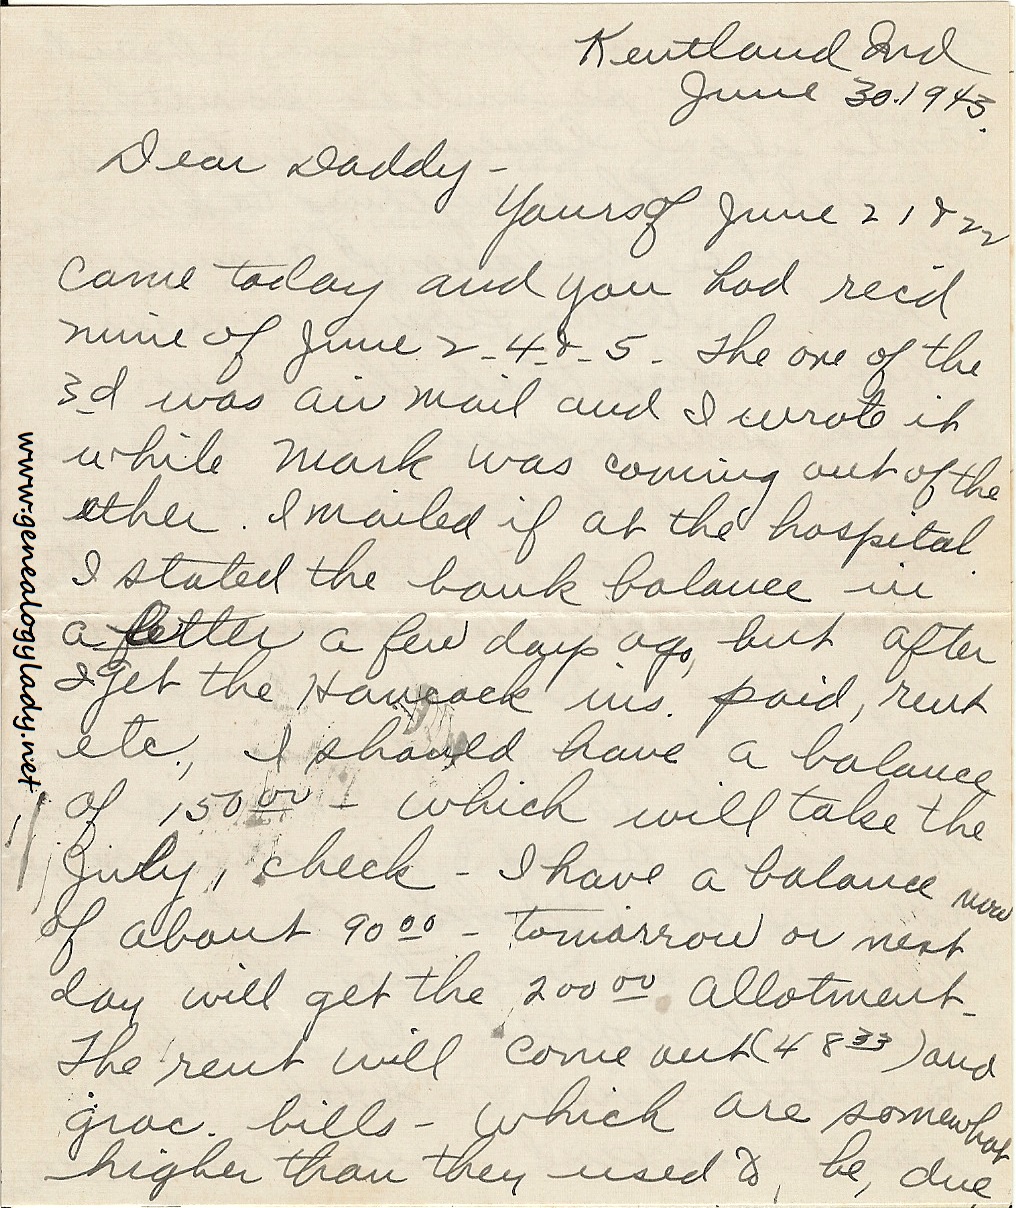 Kentland Ind
June 30. 1943.
Dear Daddy -
Yours of June 21 & 22
came today and you had rec'd
mine of June 2 - 4 - & - 5 - The one of the
3d was air mail and I wrote it
while Mark was coming out of the
ether. I mailed if at the hospital
I stated the bank balance in
a letter a few days ago, but after
I get the Hancock ins. paid, rent
etc., I should have a balance
of 150 00 - which will take the
July, check - I have a balance now
of about 90 00 - tomorrow or next
day will get the 200 00 allotment -
The rent will come out (48 33) and
groc. bills - which are somewhat
higher than they used to, be, due
www.genealogylady.net